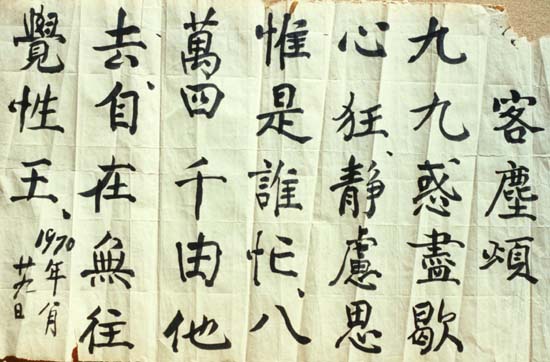 客塵頌
九九惑盡歇
心狂、靜慮思
惟是誰忙、八
萬四千由他
去、自在無往
覺性王、
1970年八月
廿九日